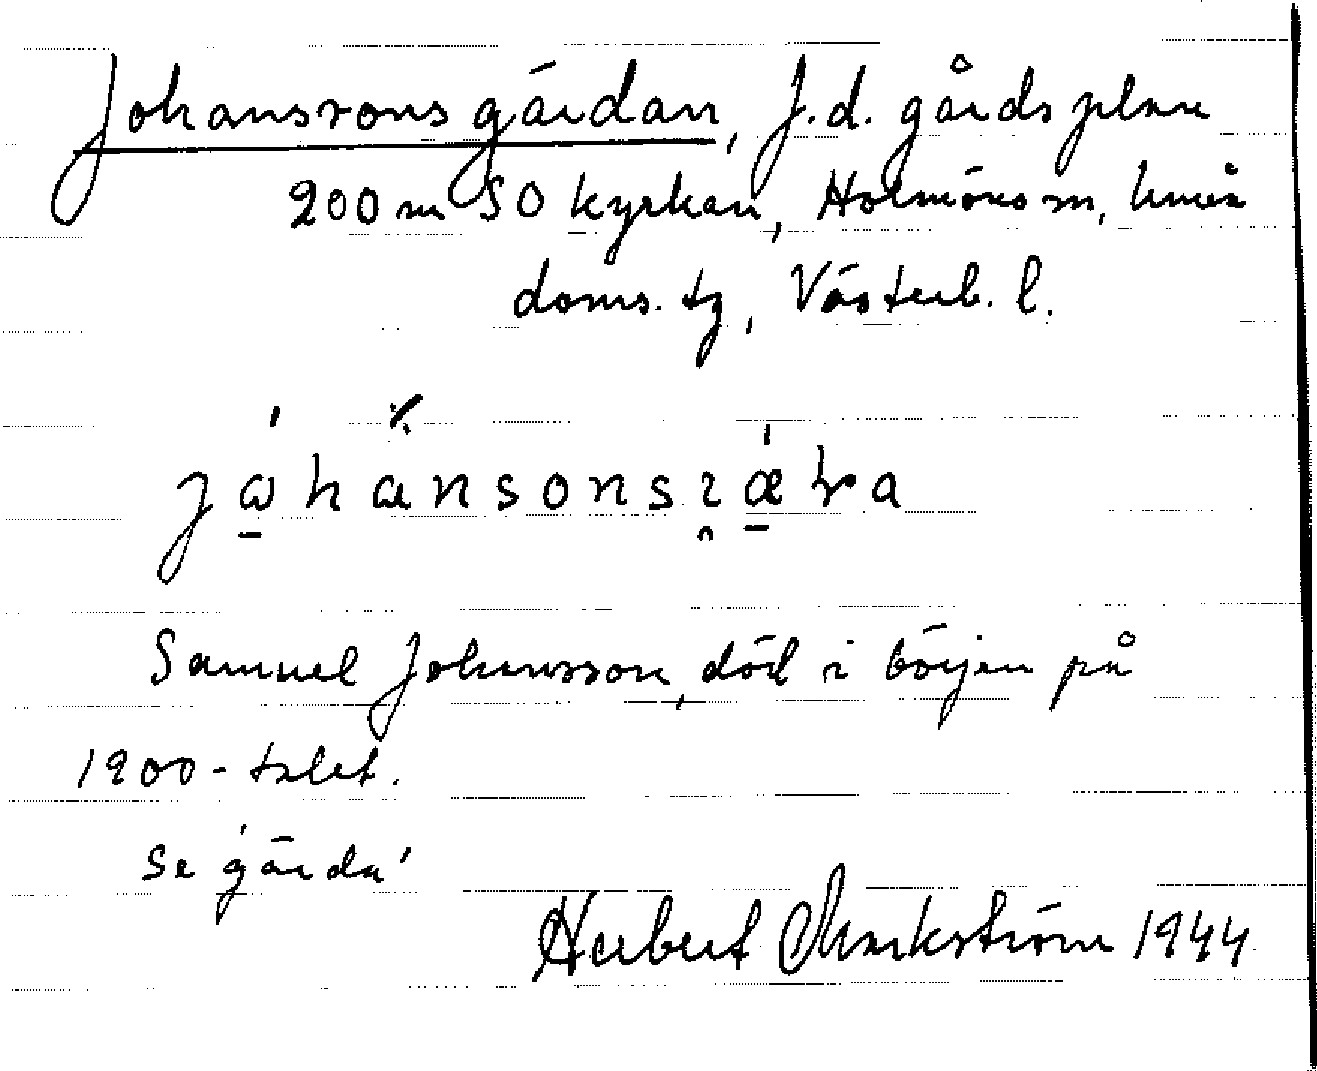 Johanssons gärdan, f.d. gårdsplan
200 m SO kyrkan, Holmöns sn, Umeå
doms. tg, Västerb. l.
Samuel Johansson, död i början på
1900-talet.
Se 'gärda'
Herbert Markström 1944